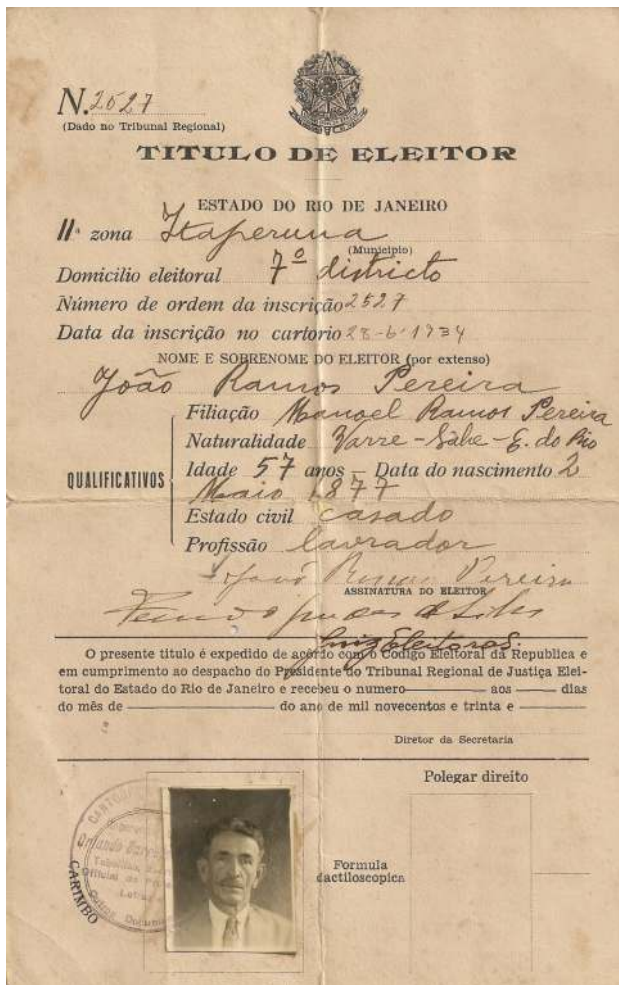 N. 2527
(Dado no Tribunal Regional)
TITULO DE ELEITOR
ESTADO DO RIO DE JANEIRO
11ª zona Itaperuna
(Municipio)
Domicilio eleitoral 7º districto
Número de ordem da inscrição 2527
Data da inscrição no cartorio 28-6-1934
NOME E SOBRENOME DO ELEITOR (por extenso)
João Ramos Pereira
Filiação Manoel Ramos Pereira
Naturalidade Varre-Sahe-E. do Rio
QUALIFICATIVOS
Idade 57 anos - Data do nascimento 2
Maio 1877
Estado civil casado
Profissão lavrador
João Ramos Pereira
ASSINATURA DO ELEITOR
Juiz Eleitoral.
O presente titulo é expedido de acôrdo com o Codigo Eleitoral da Republica e
em cumprimento ao despacho do Presidente do Tribunal Regional de Justiça Elei-
toral do Estado do Rio de Janeiro e recebeu o numero aos dias
do mês de do ano de mil novecentos e trinta e
Diretor da Secretaria
Polegar direito
Formula
dactiloscopica
CARIMBO
Orlando